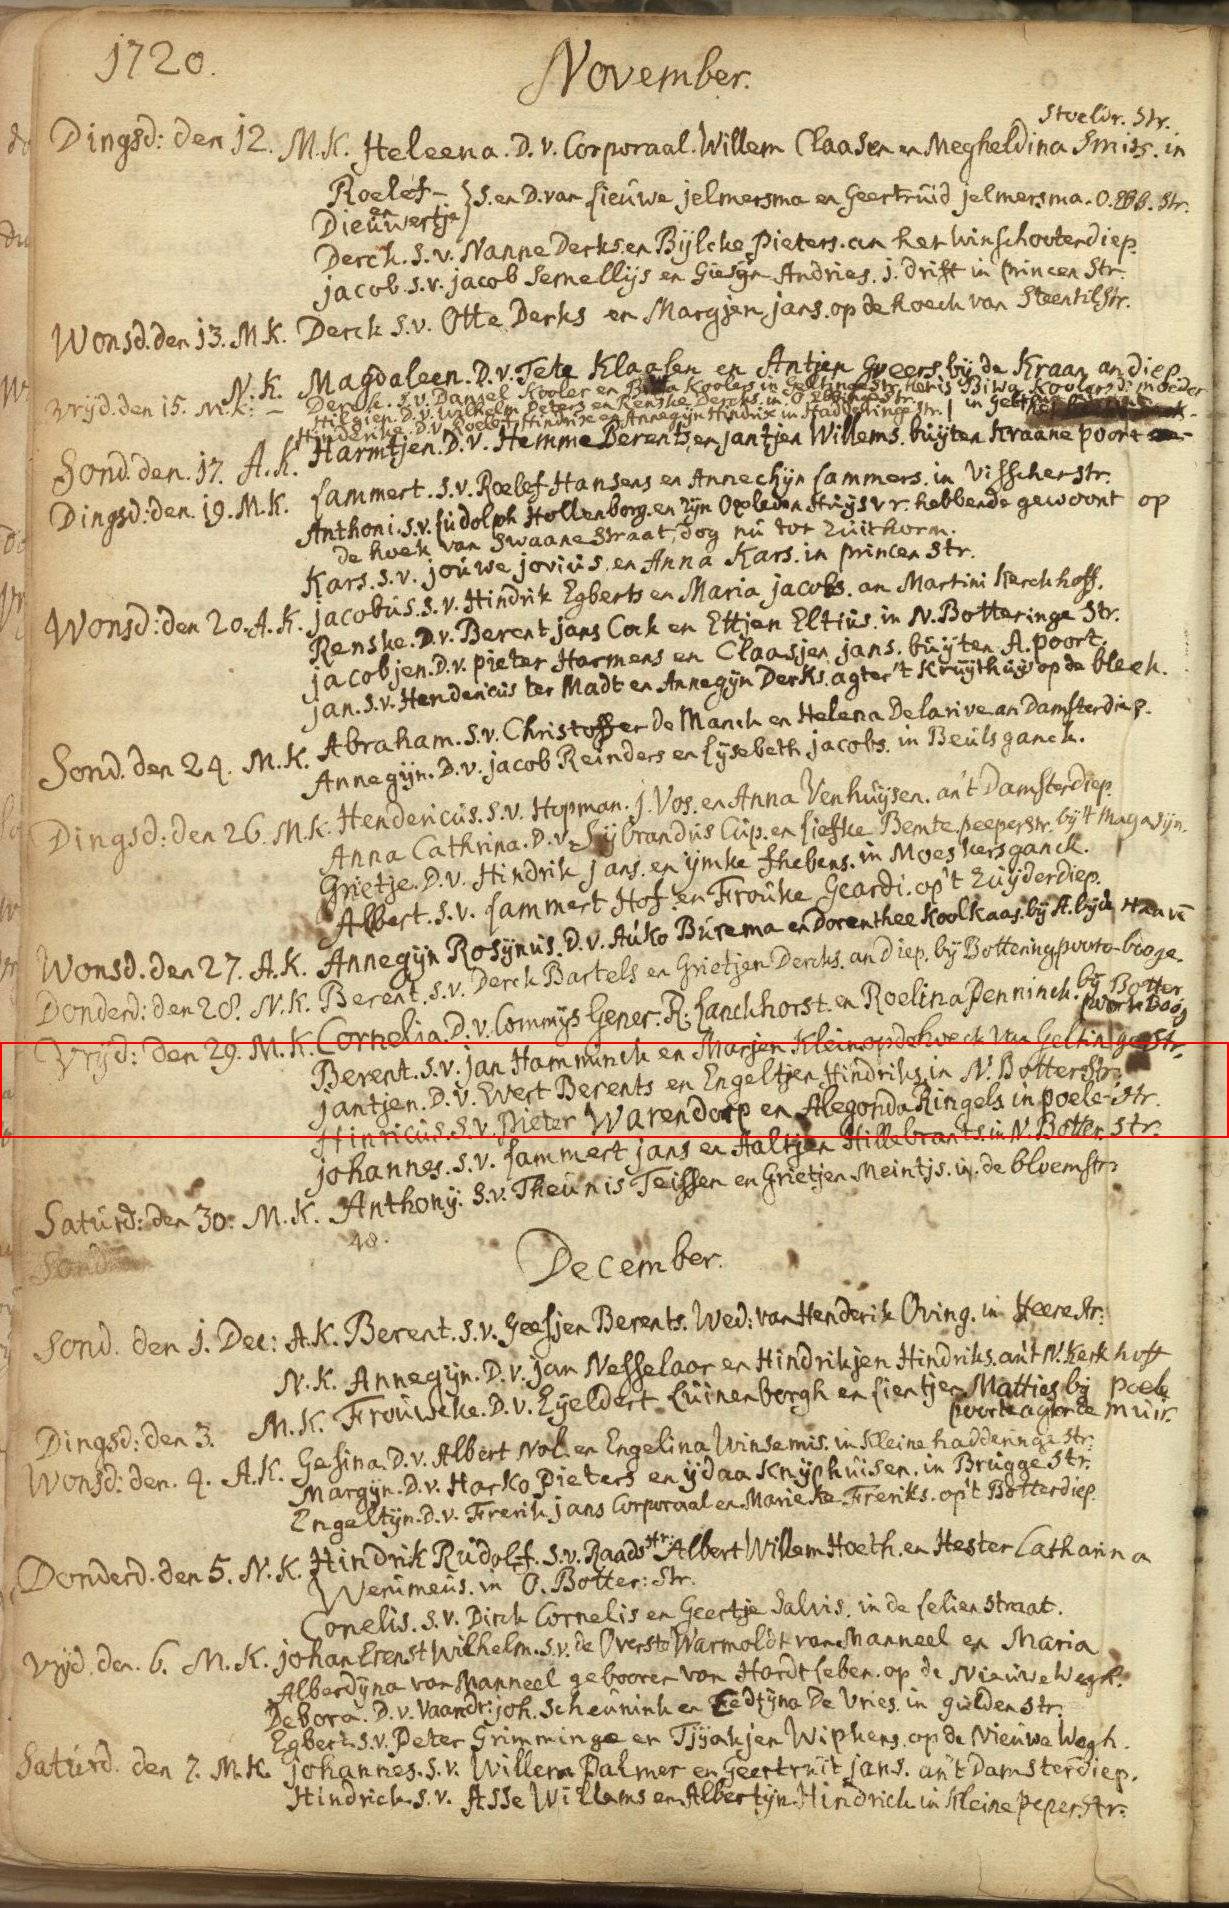 1720.
November.
Stoeldr. Str.
Dingsd: den 12. M.K. Heleena. D. v. Corporaal. Willem Claasen en Megheldina Smits. in
Roelef — } S. en D. van Lieuwe jelmersma en Geertruid jelmersma. O. Ebb. Str.
en
Dieuwertje
Derck. S. v. Nanne Derksen Bijlcke Pieters. an het winschooterdiep.
jacob. S. v. jacob Semellijs en Giesijn Andries. j. drift in princen Str.
Wonsd. den 13. M.K. Derck S. v. Otte Derks en Margjen jans. op de hoeck van Steentilstr.
N.K. Magdaleen. D. v. Tete Klaasen en Antjen Greers. bij de Kraan an diep
vrijd. den 15. M.K. — S. v. Daniel Kooler en Koolers in
D. v. Wilhelm Peters en Renske Dercks. in O. Ebbinge Str.
Hinderike. D. v. Roelef Hindrix en Annegijn Hindrix in Hadderinge Str.
Sond. den. 17. A.K. Harmtjen. D. v. Hemme Berents en jantjen Willems. buijten Kraane poort
Dingsd: den. 19. M.K. Lammert. S. v. Roelef Hansens en Annechijn Lammers. in Visscherstr.
Anthoni. S. v. Ludolph Hollenborg. en zijn Opleden Huijsvr. hebbende gewoont op
de hoek van Swaane Straat, dog nu tot Zuithorn.
Kars. S. v. jouwe jovius. en Anna Kars. in princen Str.
Wonsd: den 20. A.K. jacobus. S. v. Hindrik Egberts en Maria jacobs. an Martini Kerckhoff.
Renske. D. v. Berent jans Cock en Ettjen Eltius. in N. Botteringe Str.
jacobjen. D. v. pieter Harmens en Claasjen jans. buijten A. poort.
jan. S. v. Hendericus ter Madt en Annegijn Derks. agter 't Kruijthuijs op de bleek.
Sond. den 24. M.K. Abraham. S. v. Christoffer de Manck en Helena Delarive an Damsterdiep.
Annegijn. D. v. jacob Reinders en Lijsebeth jacobs. in Beulsganck.
Dingsd: den 26. M.K. Hendericus. S. v. Hopman. j. Vos. en Anna Venhuijsen. an't Damsterdiep.
Anna Cathrina. D. v. Sijbrandus Cup. en Liefke Bemte. peeperstr. bij 't Magasijn.
Grietje. D. v. Hindrik jans. en ijmke fhebens. in Moeskersganck.
Albert. S. v. Lammert Hof. en Frouke Geardi. op't Zuijderdiep.
Wonsd. den 27. A.K. Annegijn Rosijnus. D. v. Auko Buremа en Dorenthee Koolkaas. bij A. bij de
Donderd: den 28. N.K. Berent. S. v. Derck Bartels en Grietjen Dercks. an diep. bij Botteringpoorte-booge.
Vrijd: den 29. M.K. Cornelia. D. v. Commijs Gener. R. Lanckhorst. en Roelina Penninck. bij Botter
poorte Boog
Berent. S. v. jan Hamminck en Marjen Klein op de hoeck van Geltingestr.
jantjen. D. v. Evert Berents en Engeltjen Hindriks. in N. Botterstr:
Hinricus. S. v. Pieter Warendorp en Alegonda Ringels in poele-Str.
johannes. S. v. Lammert jans en Aaltjen Hillebrants. in N. Botter. Str.
Saturd: den 30. M.K. Anthonij. S. v. Theunis Teissen en Grietjen Meintjs. in. de bloemstr:
48.
Sond
December.
Sond. den 1. Dec: A.K. Berent. S. v. Geesjen Berents. Wed: van Henderik Oving. in Heere Str:
N.K. Annegijn. D. v. jan Nesselaar en Hindrikjen Hindriks. an't N. Kerkhoff
Dingsd: den 3. M.K. Frouweke. D. v. Eijeldert Luinenborgh en Lientjen Matties bij poele
poorte agter de muir.
Wonsd: den. 4. A.K. Gesina. D. v. Albert Nol. en Engelina Winsemis. in Kleine hadderinge str.
Margijn. D. v. Harko pieters en ijdaa Knijphuisen. in Brugge Str.
Engeltijn. D. v. Frerik jans Corporaal en Marieke Freriks. op't Botterdiep.
Donderd. den 5. N.K. Hindrik Rudolf. S. v. Raadshr: Albert Willem Hoeth. en Hester Catharina
Werumeus. in O. Botter: Str.
Conelis. S. v. Dirck Cornelis en Geertje Salvis. in de Lelienstraat.
Vrijd. den. 6. M.K. johan Erenst Wilhelm. S. v. de Overste Warmoldt van Manneel en Maria
Alberdijna van Manneel gebooren van Hardtleben. op de Nieuwe Wegh.
Debora. D. v. Vaandr: joh. Scheunink en Fedtijna De Vries. in gulden str.
Egbert. S. v. Peter Grimminge en Tjijakjen Wiphens. op de Nieuwe Wegh.
Saturd. den 7. M.K. johannes. S. v. Willem Palmer en Geertruit jans. an't Damsterdiep.
Hindrick. S. v. Asse Willams en Albertijn Hindrick in Kleine peper. Str: